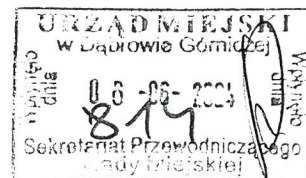 URZĄD MIEJSKI
w Dąbrowie Górniczej
Wpłynęło
dnia
06 -06- 2024
Wpłynęło
dnia
814
Sekretariat Przewodniczącego
Rady Miejskiej